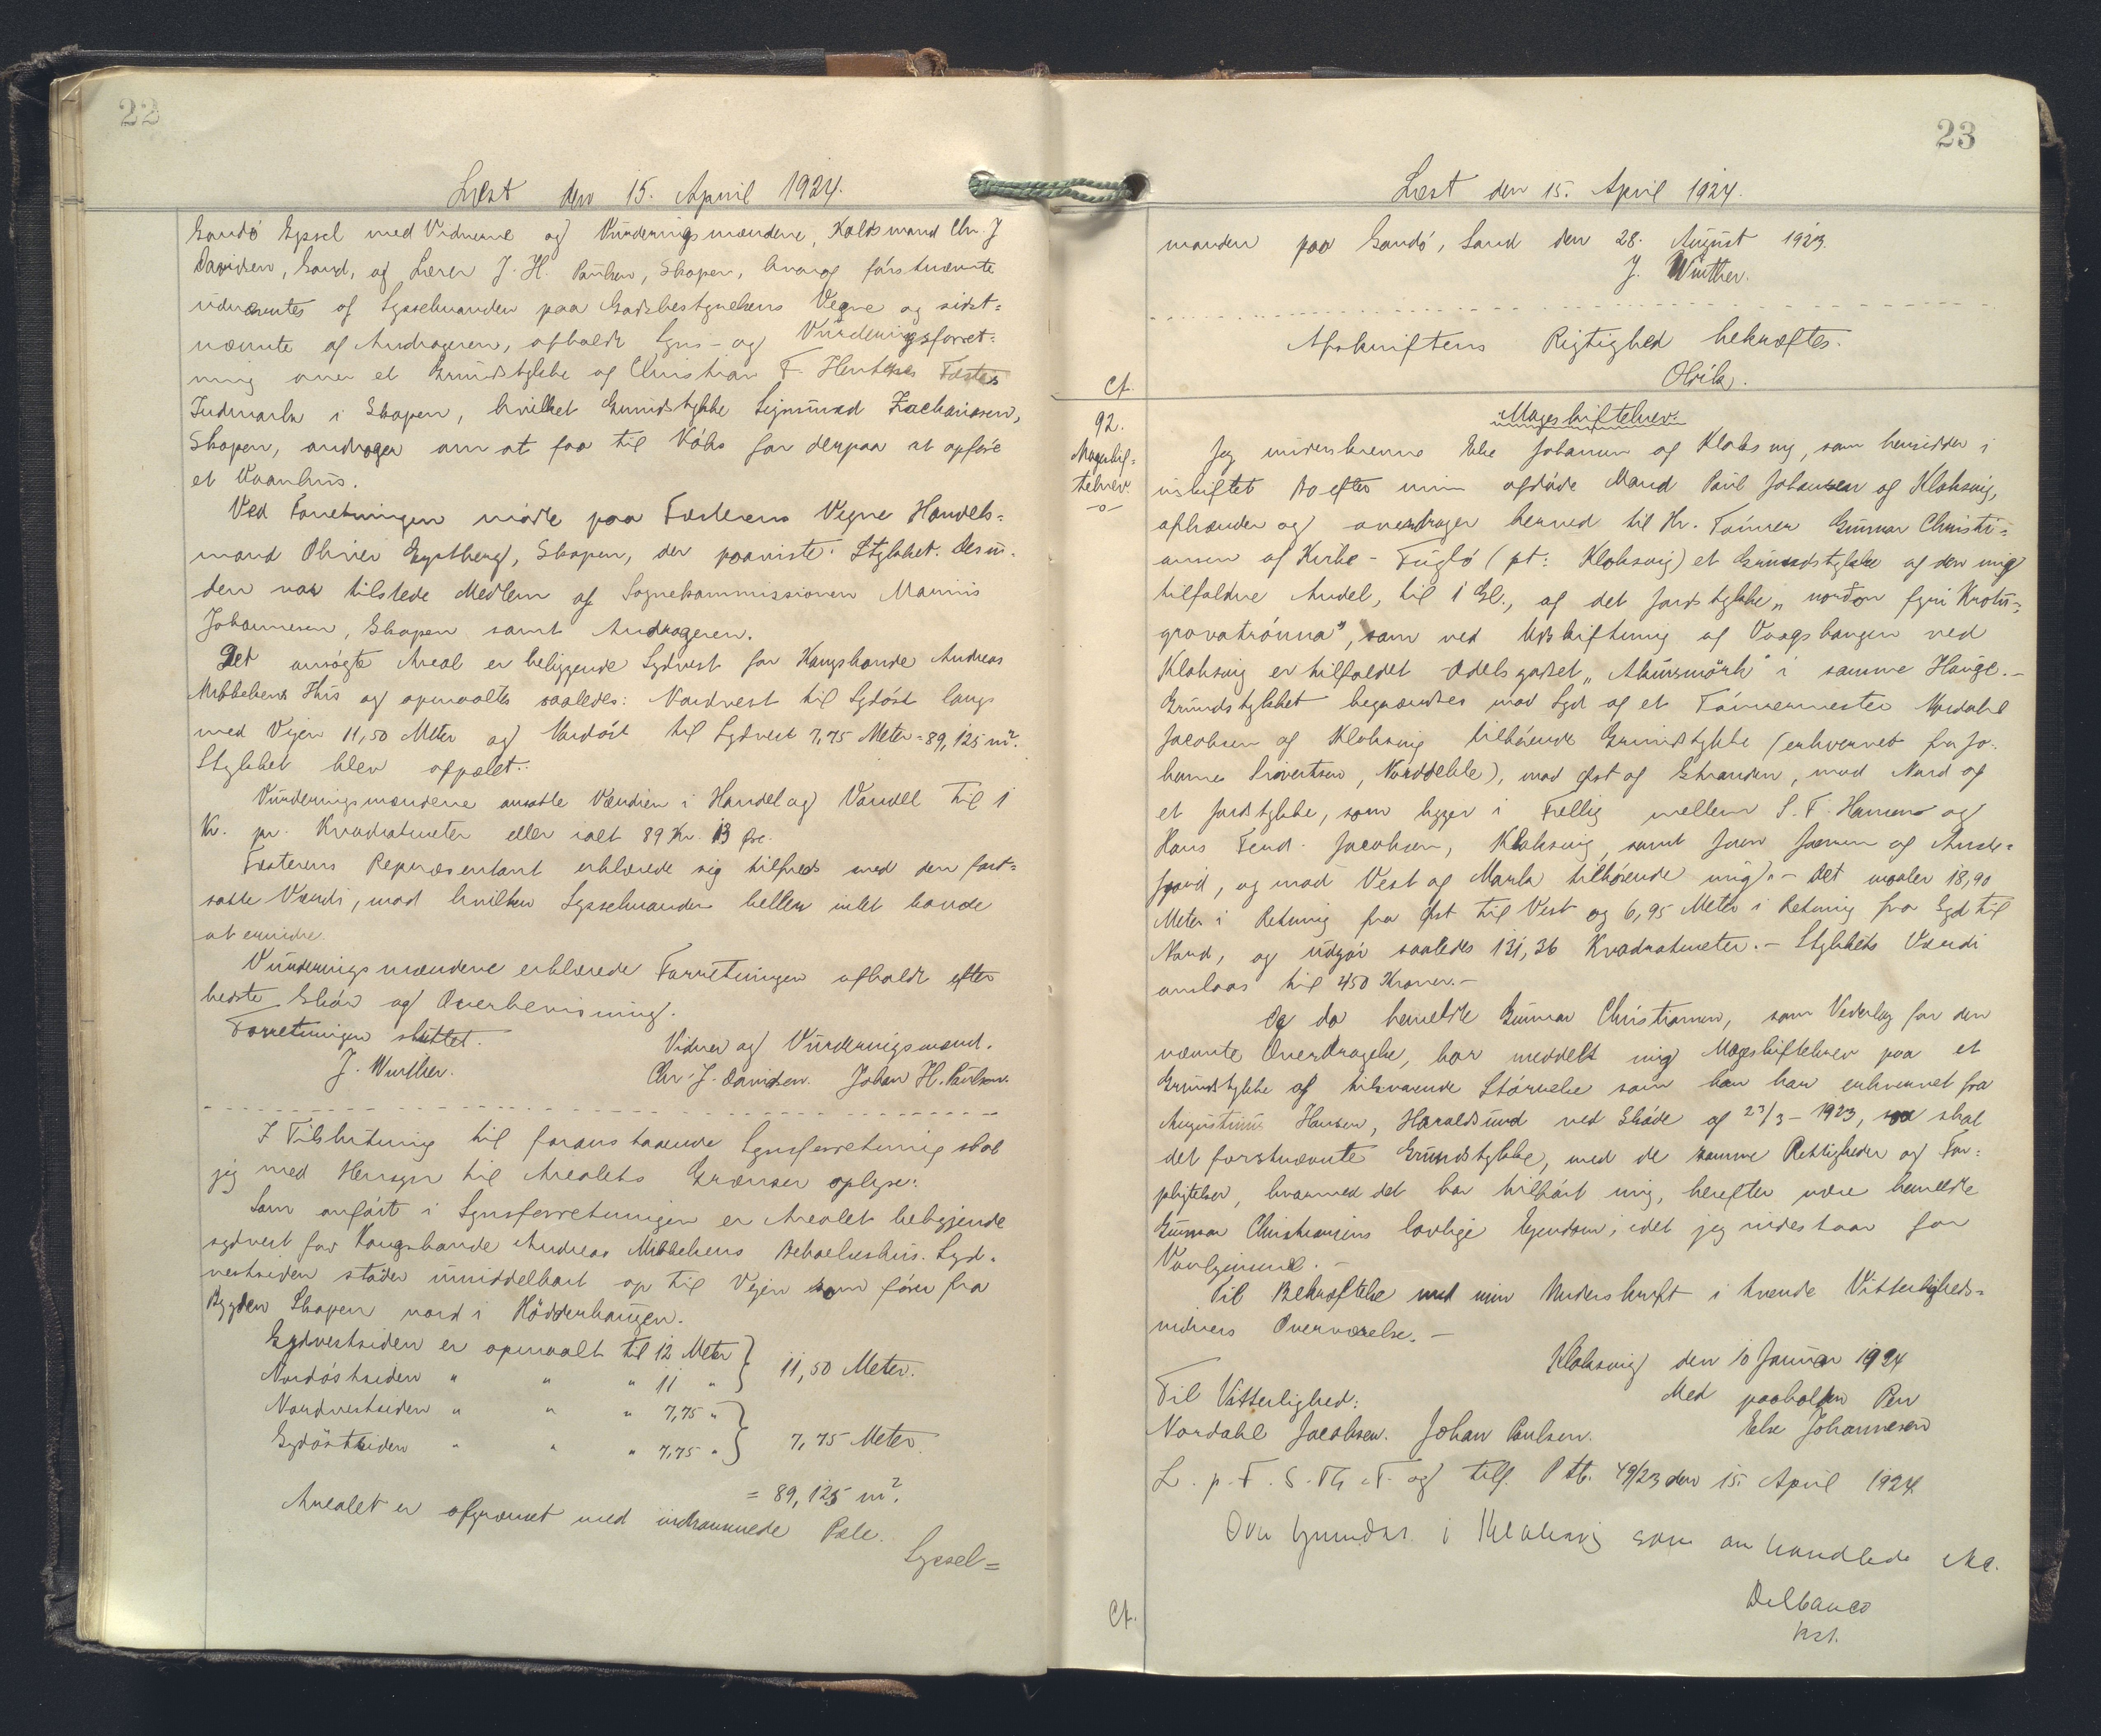 22
Læst den 15. April 1924.
Sandö Syssel med Vidnerne og Vurderingsmændene, Kaldsmand Chr. J
Davidsen, Sand, og Lærer J. H. Paulsen, Skopen, hvoraf förstnævnte
udnævntes af Sysselmanden paa Godsbestyrelsens Vegne og sidst=
nævnte af Andrageren, afholdt Syns- og Vurderingsforret=
ning over et Grundstykke af Christian F. Hentzes Fæstes
Indmark i Skopen, hvilket Grundstykke Sigmund Zachariasen,
Skopen, andrager om at faa til Köbs for derpaa at opföre
et Vaanhus.
Ved Forretningen mödte paa Fæsterens Vegne Handels=
mand Oliver Effersöe, Skopen, der paaviste Stykket. Desu=
den var tilstede Medlem af Sognekommissionen Maurius
Johannesen, Skopen samt Andrageren.
Det ansögte Areal er beliggende Sydvest for Kongsbonde Andreas
Mikkelsens Hus og opmaaltes saaledes: Nordvest til Sydöst langs
med Vejen 11,50 Meter og Nordöst til Sydvest 7,75 Meter = 89,125 m².
Stykket blev afpælet.
Vurderingsmændene ansatte Værdien i Handel og Vandel til 1
Kr. pr. Kvadratmeter eller ialt 89 Kr. 13 Öre.
Fæsterens Repræsentant erklærede sig tilfreds med den fast=
satte Værdi, mod hvilken Sysselmanden heller intet havde
at erindre.
Vurderingsmændene erklærede Forretningen afholdt efter
bedste Skön og Overbevisning.
Forretningen sluttet.
J. Winther.
Vidner og Vurderingsmænd.
Chr. J. Davidsen. Johan H. Paulsen.
I Tilslutning til foranstaaende Synsforretning skal
jeg med Hensyn til Arealets Grænser oplyse:
Som anfört i Synsforretningen er Arealet beliggende
sydvest for Kongsbonde Andreas Mikkelsens Beboelseshus. Syd=
vestsiden stöder umiddelbart op til Vejen som förer fra
Bygden Skopen nord i Höddenhaugen.
Sydvestsiden er opmaalt til 12 Meter } 11,50 Meter.
Nordöstsiden " " " 11 "
Nordvestsiden " " " 7,75 " } 7,75 Meter.
Sydöstsiden " " " 7,75 "
= 89,125 m².
Arealet er afgrænset med nedrammede Pæle.
Syssel=
23
Læst den 15. April 1924.
manden paa Sandö, Sand den 28. August 1923.
J. Winther.
Afskriftens Rigtighed bekræftes.
Olrik.
Ct.
92.
Mageskif=
tebrev.
-o-
Mageskiftebrev.
Jeg underskrevne Else Johannesen af Klaksvig, som hensidder i
uskiftet Bo efter min afdöde Mand Poul Johansen af Klaksvig,
afhænder og overdrager herved til Hr. Tömrer Gunnar Christi=
ansen af Kirke-Fuglö (pt: Klaksvig) et Grundstykke af den mig
tilfaldne Andel, til 1 Gl., af det Jordstykke, "nordan fyri Krotu=
grovatrónna", som ved Udskiftning af Vaagshaugen ved
Klaksvig er tilfaldet Odelsgodset "Akursmörk" i samme Hauge.-
Grundstykket begrændses mod Syd af et Tömrermester Nordahl
Jacobsen af Klaksvig tilhörende Grundstykke (erhvervet fra Jo=
hannes Sivertsen, Norddeble), mod Öst af Stranden, mod Nord af
et Jordstykke, som ligger i Fællig mellem S. F. Hansen og
Hans Fend. Jacobsen, Klaksvig, samt Joen Joensen af Ande=
fjord, og mod Vest af Mark tilhörende mig.- Det maaler 18,90
Meter i Retning fra Öst til Vest og 6,95 Meter i Retning fra Syd til
Nord, og udgör saaledes 131,36 Kvadratmeter.- Stykkets Værdi
anslaas til 450 Kroner.-
Og da bemeldte Gunnar Christiansen, som Vederlag for den
nævnte Overdragelse, har meddelt mig Mageskiftebrev paa et
Grundstykke af tilsvarende Störrelse som han har erhvervet fra
Augustinus Hansen, Haraldsund ved Sköde af 23/3-1923, saa skal
det förstnævnte Grundstykke, med de samme Rettigheder og For=
pligtelser, hvormed det har tilhört mig, herefter være bemeldte
Gunnar Christiansens lovlige Ejendom, idet jeg indestaar for
Vanhjemmel.-
Til Bekræftelse med min Underskrift i tvende Vitterligheds=
vidners Overværelse.-
Klaksvig den 10 Januar 1924
Med paaholden Pen
Else Johannesen
Til Vitterlighed:
Nordahl Jacobsen. Johan Poulsen.
L. p. F. S. Th. F. og tilf. Ptb. 49/23 den 15. April 1924
Over Grunden i Klaksvig som omhandlede
Delbanco
kst.
Ct.